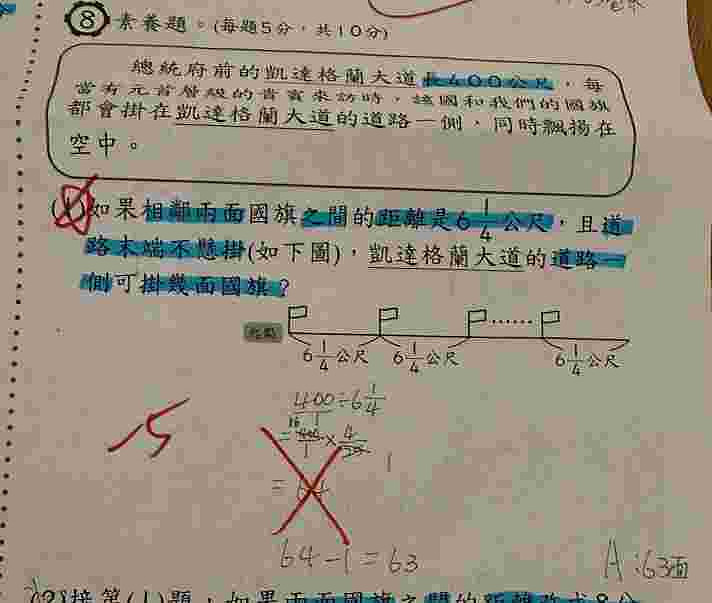 8 素養題。(每題5分，共10分)
總統府前的凱達格蘭大道長400公尺，每
當有元首層級的貴賓來訪時，該國和我們的國旗
都會掛在凱達格蘭大道的道路一側，同時飄揚在
空中。
(1)如果相鄰兩面國旗之間的距離是6 1/4 公尺，且道
路末端不懸掛(如下圖)，凱達格蘭大道的道路一
側可掛幾面國旗？
......
6 1/4 公尺 6 1/4 公尺 6 1/4 公尺
400÷6 1/4
64-1=63
A:63面